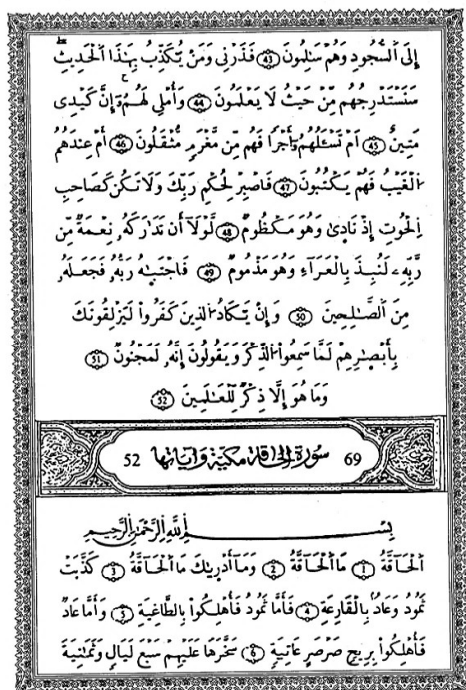 إِلَى اَلسُّجُودِ وَهُمْ سَٰلِمُونَ 43 فَذَرْنِي وَمَنْ يُّكَذِّبُ بِهَٰذَا اَلْحَدِيثِ
سَنَسْتَدْرِجُهُم مِّنْ حَيْثُ لَا يَعْلَمُونَ 44 وَأُمْلِي لَهُمُۥٓ إِنَّ كَيْدِي
مَتِينٌ 45 أَمْ تَسْـَٔلُهُمُۥٓ أَجْرًا فَهُم مِّن مَّغْرَمٍ مُّثْقَلُونَ 46 أَمْ عِندَهُمُ
اَلْغَيْبُ فَهُمْ يَكْتُبُونَ 47 فَاصْبِرْ لِحُكْمِ رَبِّكَ وَلَا تَكُن كَصَاحِبِ
اِلْحُوتِ إِذْ نَادَىٰ وَهُوَ مَكْظُومٌ 48 لَّوْلَآ أَن تَدَٰرَكَهُۥ نِعْمَةٌ مِّن
رَّبِّهِۦ لَنُبِذَ بِالْعَرَآءِ وَهُوَ مَذْمُومٌ 49 فَاجْتَبَٰهُ رَبُّهُۥ فَجَعَلَهُۥ
مِنَ اَلصَّٰلِحِينَ 50 وَإِنْ يَّكَادُ اُلذِينَ كَفَرُوا۟ لَيَزْلِقُونَكَ
بِأَبْصَٰرِهِمْ لَمَّا سَمِعُوا۟ اُلذِّكْرَ وَيَقُولُونَ إِنَّهُۥ لَمَجْنُونٌ 51
وَمَا هُوَ إِلَّا ذِكْرٌ لِّلْعَٰلَمِينَ 52
69 سُورَةُ الْحَاقَّةِ مَكِّيَّةٌ وَءَايَاتُهَا 52
بِسْمِ اِللَّهِ اِلرَّحْمَٰنِ اِلرَّحِيمِ
اِلْحَآقَّةُ 1 مَا اَلْحَآقَّةُ 2 وَمَآ أَدْر۪ىٰكَ مَا اَلْحَآقَّةُ 3 كَذَّبَتْ
ثَمُودُ وَعَادٌۢ بِالْقَارِعَةِ 4 فَأَمَّا ثَمُودُ فَأُهْلِكُوا۟ بِالطَّاغِيَةِ 5 وَأَمَّا عَادٌ
فَأُهْلِكُوا۟ بِرِيحٍ صَرْصَرٍ عَاتِيَةٍ 6 سَخَّرَهَا عَلَيْهِمْ سَبْعَ لَيَالٍ وَثَمَٰنِيَةَ